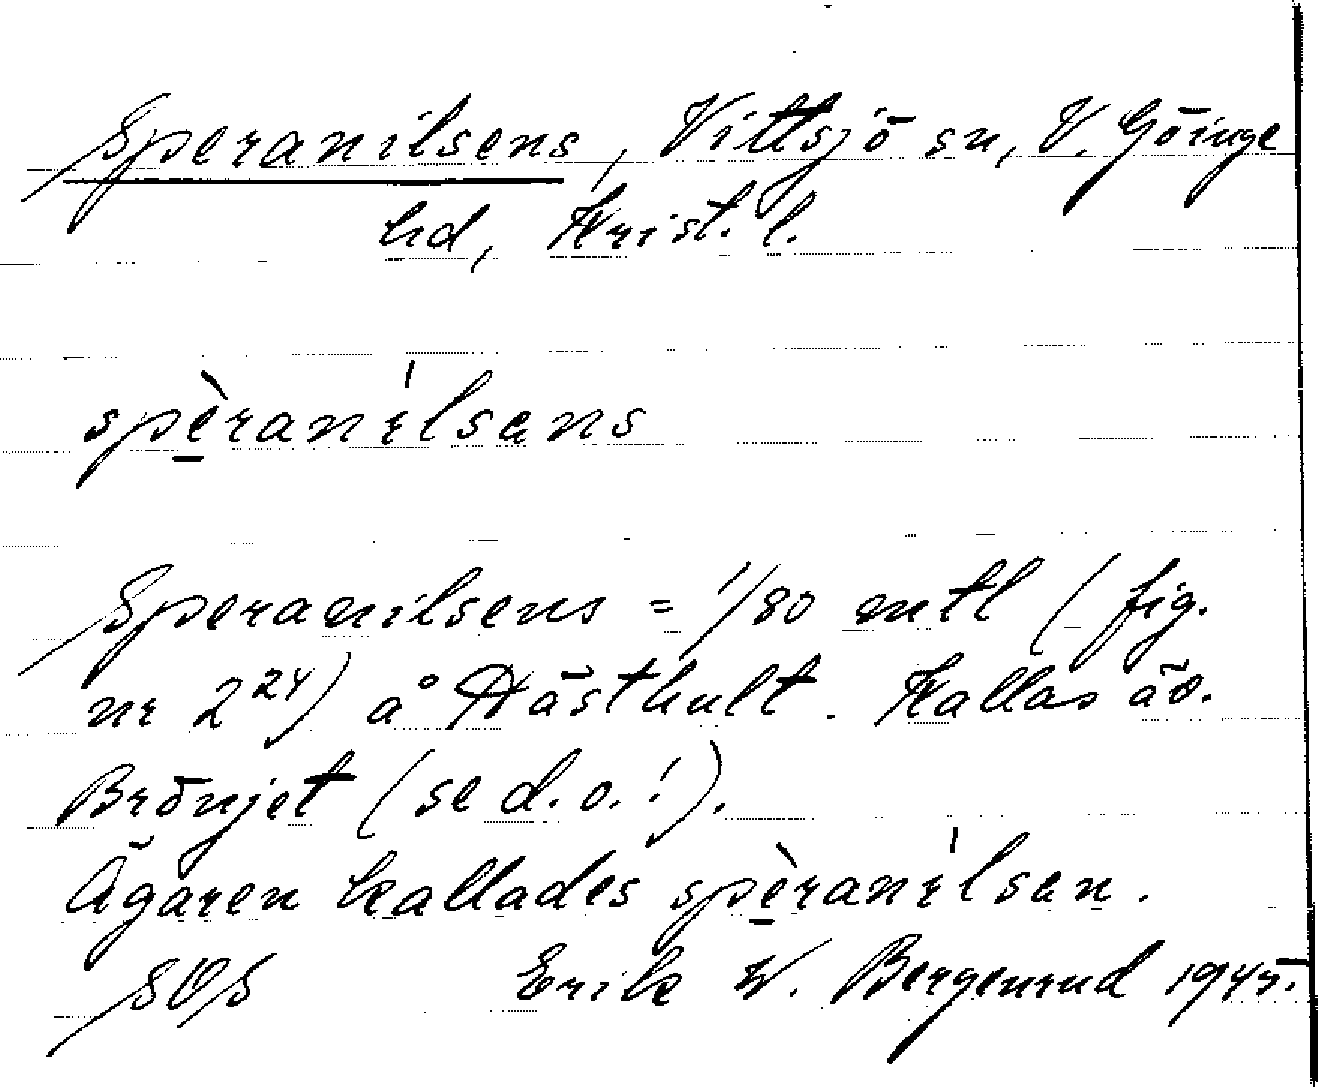 Speranilsens, Vittsjö sn, V. Göinge
hd, Krist. l.
spèranílsens
Speranilsens = 1/80 mtl (fig.
nr 2²⁴) å Hästhult. Kallas äv.
Brönjet (se d.o.!).
Ägaren kallades spèranílsen.
SOS Erik W. Bergenrud 1945.